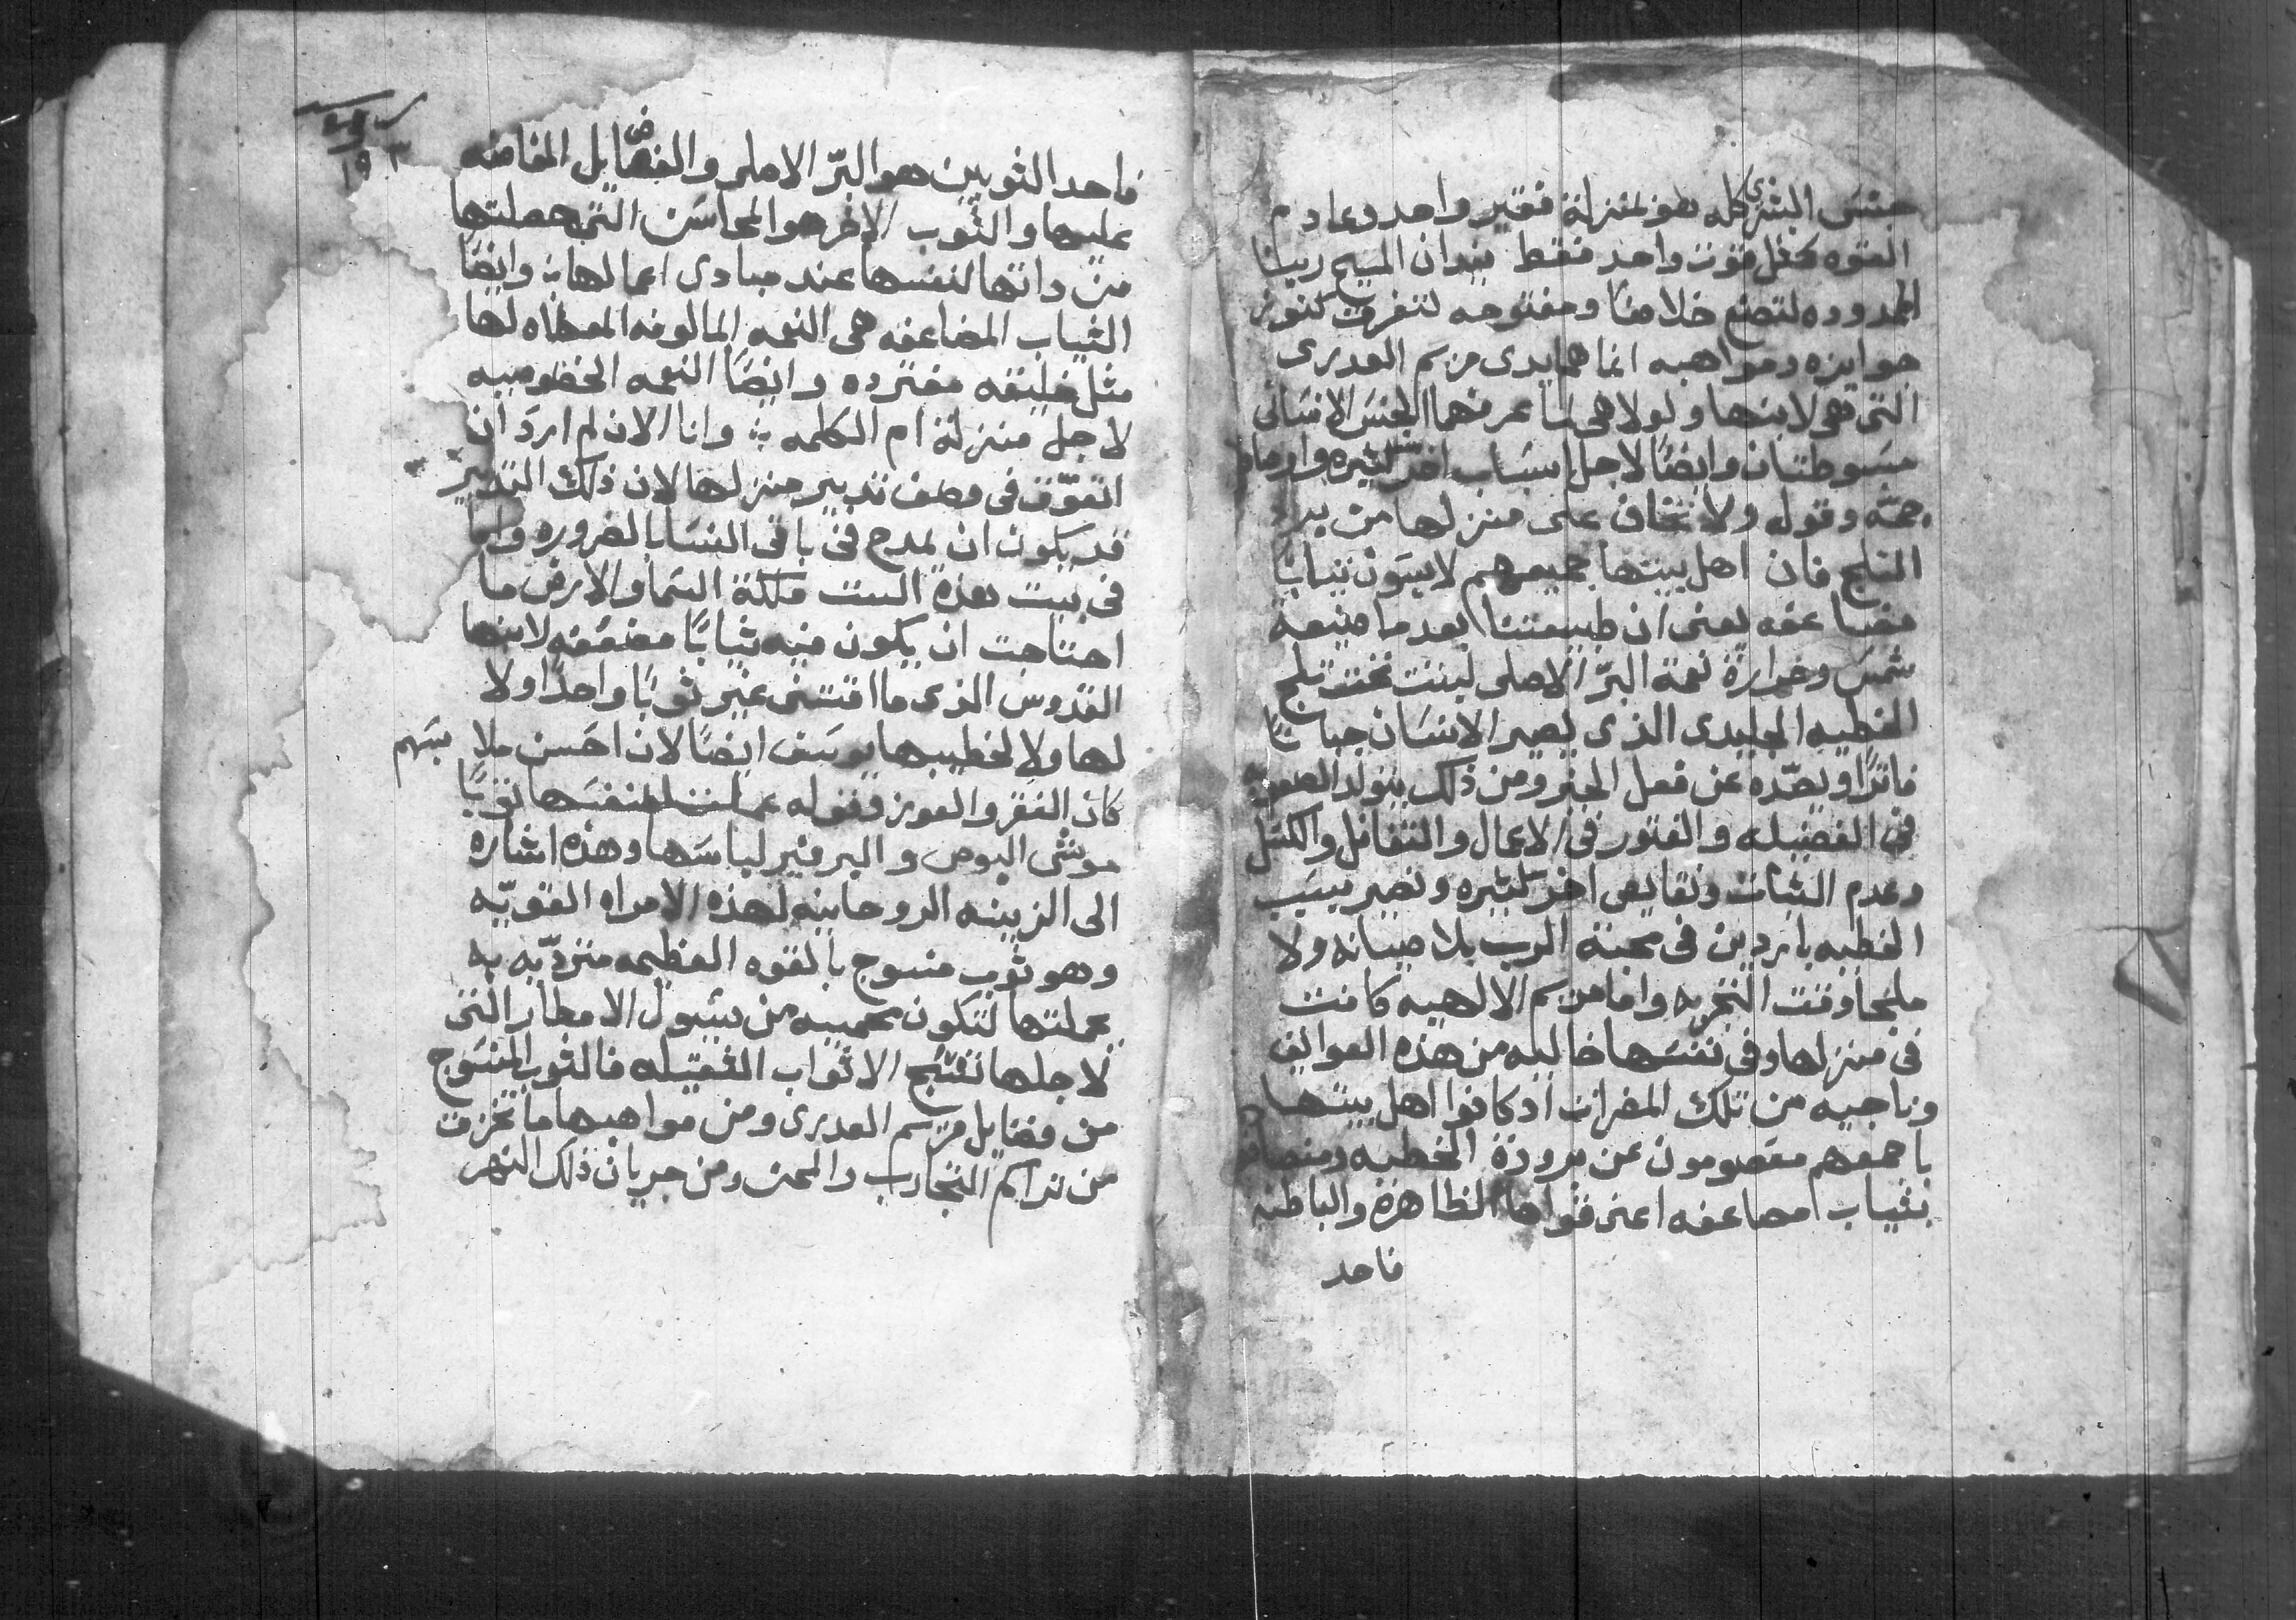 جنس البشرى كله هو بمنزلة فقير واحد وعادم
القوه كمثل قوت واحد فقط بيدان المسيح ربنا
الممدوده لتصنع خلاصنا ومفتوحه لتفرق كنوز
جوايزه ومواهبه انما هما يدى مريم العدرى
التى هى لابنها ولولا هى لما عرفهما الجنس الانسانى
مبسوطتان وايضًا لاجل اسباب اخر كثيره واوصاف
جمّه وقوله ولا تخاف على منزلها من برد
الثلج فان اهل بيتها جميعهم لابسون ثيابًا
مضاعفه يعنى ان طبيعتنا بعد ما ضيعة
شمس وحرارة نعمة البرّ الاصلى لبثت تحت ثلج
الخطيه الجليدى الذى يصير الانسان جبانًا
فاترًا ويصّده عن فعل الخير ومن ذلك يتولد الصعوبه
فى الفضيله والفتور فى الاعمال والتغافل والكسل
وعدم الثبات ونقايص اخر كثيره وتصير بسبب
الخطيه باردين فى محبة الرب بلا صيانه ولا
ملجا وقت التجربه واما مريم الالهيه كانت
فى منزلها وفى نفسها خاليه من هذه العوايق
وناجيه من تلك المضرات اذ كانوا اهل بيتها
باجمعهم معصومون عن برودة الخطيه ومتصافين
بثياب مضاعفه اعنى قواها الظاهرة والباطنه
فاحد
١٥٣
فاحد الثوبين هو البرّ الاصلى والفضايل المفاضه
عليها والثوب الاخر هو المحاسن التى حصلتها
من داتها لنفسها عند مبادى اعمالها ؞ وايضًا
الثياب المضاعفه هى النعمه المالوفه المعطاه لها
مثل خليقه مفترده وايضًا النعمه الخصوصيه
لاجل منزلة ام الكلمه ؞ وانا الان لم ارد ان
اتعوّق فى وصف تدبير منزلها لان ذلك التدبير
قد يكون ان يمدح فى باقى النسا بالضروره واما
فى بيت هذه الست ملكة السما والارض ما
احتاجت ان يكون فيه ثيابًا مضعفه لابنها
القدوس الذى ما اقتنى غير ثوبًا واحدًا ولا
لها ولا لخطيبها يوسف ايضًا لان احسن ملابسهم
كان الفقر والعوز وقوله عملت لنفسها ثوبًا
موشى البوص والبرفير لباسها وهذه اشاره
الى الزينه الروحانيه لهذه الامراه القويّه
وهو ثوب منسوج بالقوه العظيمه متردّيه به
عملتها لتكون محميه من سيول الامطار التى
لاجلها تنتسج الاثواب الثقيله فالثوب المنسوج
من فضايل مريم العدرى ومن مواهبها ما تخزق
من تراكم التجارب والمحن ومن جريان ذلك النهر